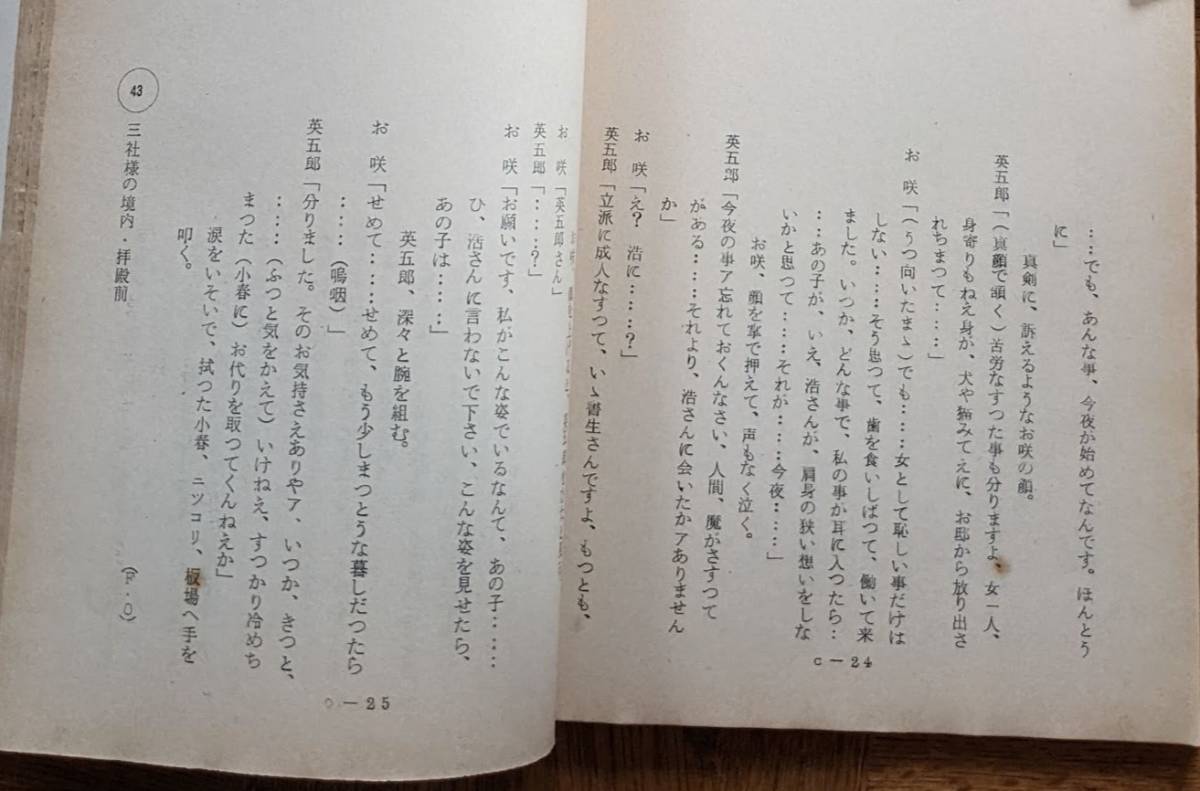 ‥‥でも、あんな事、今夜が始めてなんです。ほんとう
に」
真剣に、訴えるようなお咲の顔。
英五郎「(真顔で頷く)苦労なすつた事も分りますよ、女一人、
身寄りもねえ身が、犬や猫みてえに、お邸から放り出さ
れちまつて‥‥‥」
お 咲「(うつ向いたまゝ)でも‥‥‥女として恥しい事だけは
しない‥‥そう思つて、歯を食いしばつて、働いて来
ました。いつか、どんな事で、私の事が耳に入つたら‥
‥‥あの子が、いえ、浩さんが、肩身の狭い想いをしな
いかと思つて‥‥‥それが‥‥‥今夜‥‥‥」
お咲、顔を掌で押えて、声もなく泣く。
英五郎「今夜の事ア忘れておくんなさい、人間、魔がさすつて
がある‥‥‥それより、浩さんに会いたかアありません
か」
お 咲「え? 浩に‥‥‥?」
英五郎「立派に成人なすつて、いゝ書生さんですよ、もつとも、
C-24
お 咲「英五郎さん」
英五郎「‥‥‥?」
お 咲「お願いです、私がこんな姿でいるなんて、あの子‥‥‥
ひ、浩さんに言わないで下さい、こんな姿を見せたら、
あの子は‥‥‥」
英五郎、深々と腕を組む。
お 咲「せめて‥‥‥せめて、もう少しまつとうな暮しだつたら
‥‥‥(嗚咽)」
英五郎「分りました。そのお気持さえありやア、いつか、きつと、
‥‥‥(ふつと気をかえて)いけねえ、すつかり冷めち
まつた(小春に)お代りを取つてくんねえか」
涙をいそいで、拭つた小春、ニツコリ、板場へ手を
叩く。
(F・O)
43 三社様の境内・拝殿前
-25